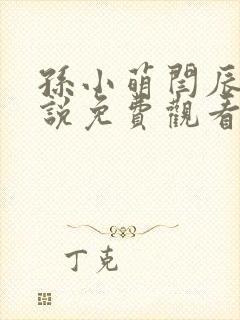 孫小萌閆辰
說免費觀看
丁克